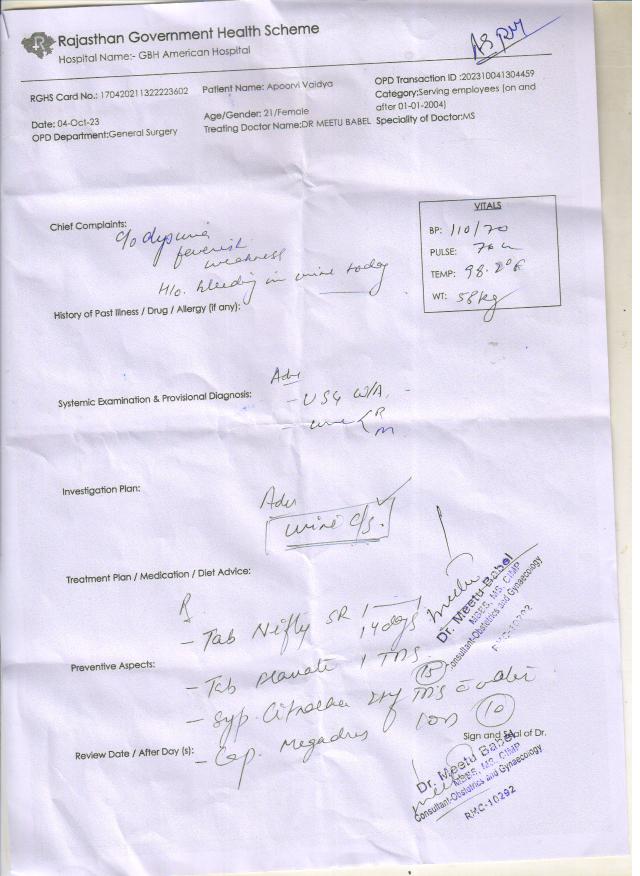 As per
Rajasthan Government Health Scheme
Hospital Name:- GBH American Hospital
RGHS Card No.: 170420211322223602
Patient Name: Apoorvi Vaidya
OPD Transaction ID :202310041304459
Category:Serving employees (on and after 01-01-2004)
Date: 04-Oct-23
Age/Gender: 21/Female
OPD Department:General Surgery
Treating Doctor Name:DR MEETU BABEL
Speciality of Doctor:MS
VITALS
BP: 110/70
PULSE: 76
TEMP: 98.2°F
WT: 58kg
Chief Complaints:
c/o dysuria
feverish
weakness
H/o. bleeding in urine today
History of Past Illness / Drug / Allergy (if any):
Adv
Systemic Examination & Provisional Diagnosis:
- USG W/A.
- urine R
M
Investigation Plan:
Adv
urine c/s.
Treatment Plan / Medication / Diet Advice:
R
- Tab Nifty SR 1
14 days
Preventive Aspects:
- Tab 1 TDS 15
- Syp. TDS
Review Date / After Day (s):
- Cap. 1 OD 10
Dr. Meetu Babel
MBBS, MS, CIMP
Consultant-Obstetrics and Gynaecology
RMC-10292
Sign and Seal of Dr.
Dr. Meetu Babel
MBBS, MS, CIMP
Consultant-Obstetrics and Gynaecology
RMC-10292